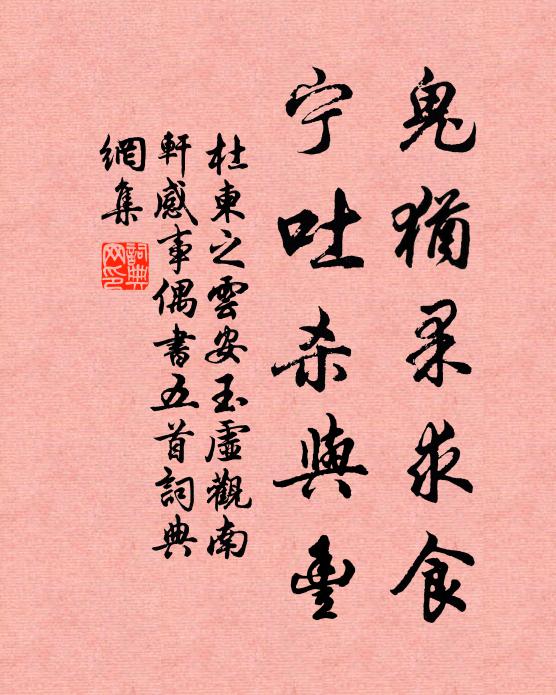 鬼猶罙求食
宁吐杀與豐
杜東之雲安玉虛觀南
軒感事偶書五首詞典
網集
詞典
网印